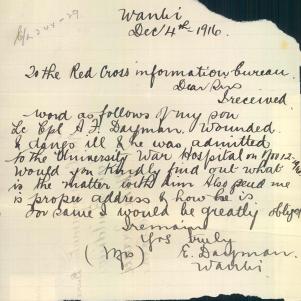 Wanbi
Dec 4th 1916.
To the Red Cross information bureau.
Dear Sirs
I received
word as follows of my son
Lc Cpl A. F. Dayman. Wounded.
& dangs ill & he was admitted
to the University War Hospital on
Would you kindly find out what
is the matter with him Also send me
is proper address & how he is
For same I would be greatly oblige
I remain
Yrs truly
(Mrs) E. Dayman.
Wanbi